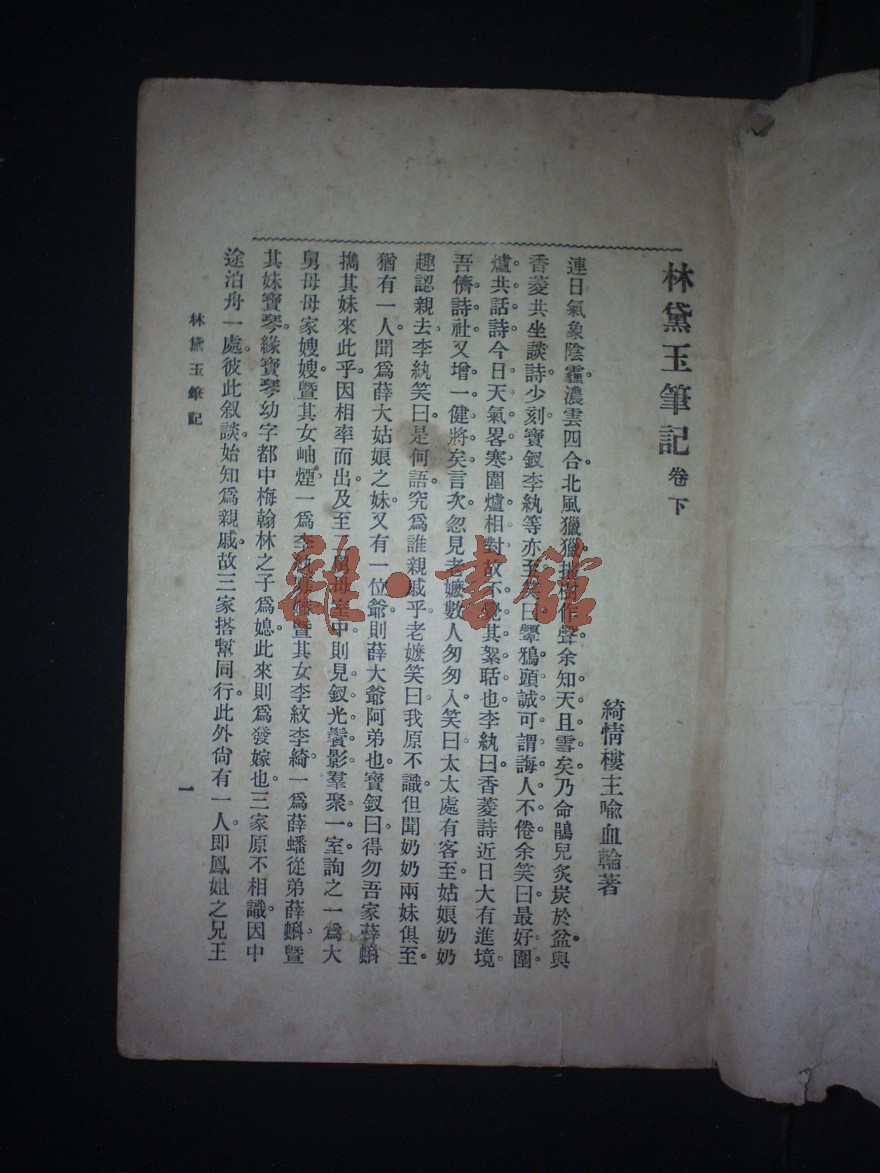 林黛玉筆記 卷下
綺情樓主喩血輪著
連日氣象陰霾。濃雲四合。北風獵獵。 樹作聲。余知天且雪矣。乃命鵑兒炙炭於盆。與
香菱共坐談詩。少刻寶釵李紈等亦至。笑曰。顰鴉頭誠可謂誨人不倦。余笑曰。最好圍
爐共話詩。今日天氣畧寒。圍爐相對。故不覺其絮聒也。李紈曰。香菱詩近日大有進境。
吾儕詩社又增一健將矣。言次。忽見老嬷數人匆匆入。笑曰。太太處有客至。姑娘奶奶
趣認親去。李紈笑曰。是何語。究爲誰親戚乎。老嬷笑曰。我原不識。但聞奶奶兩妹俱至。
猶有一人。聞爲薛大姑娘之妹。又有一位爺。則薛大爺阿弟也。寶釵曰。得勿吾家薛蝌
攜其妹來此乎。因相率而出。及至二舅母室中。則見釵光鬢影。羣聚一室。詢之。一爲大
舅母母家嫂嫂。曁其女岫煙。一爲李紈 曁其女李紋李綺。一爲薛蟠從弟薛蝌。曁
其妹寶琴。緣寶琴幼字都中梅翰林之子爲媳。此來則爲發嫁也。三家原不相識。因中
途泊舟一處。彼此叙談。始知爲親戚。故三家搭幫同行。此外尙有一人。即鳳姐之兄王
林黛玉筆記
一
雜·書館